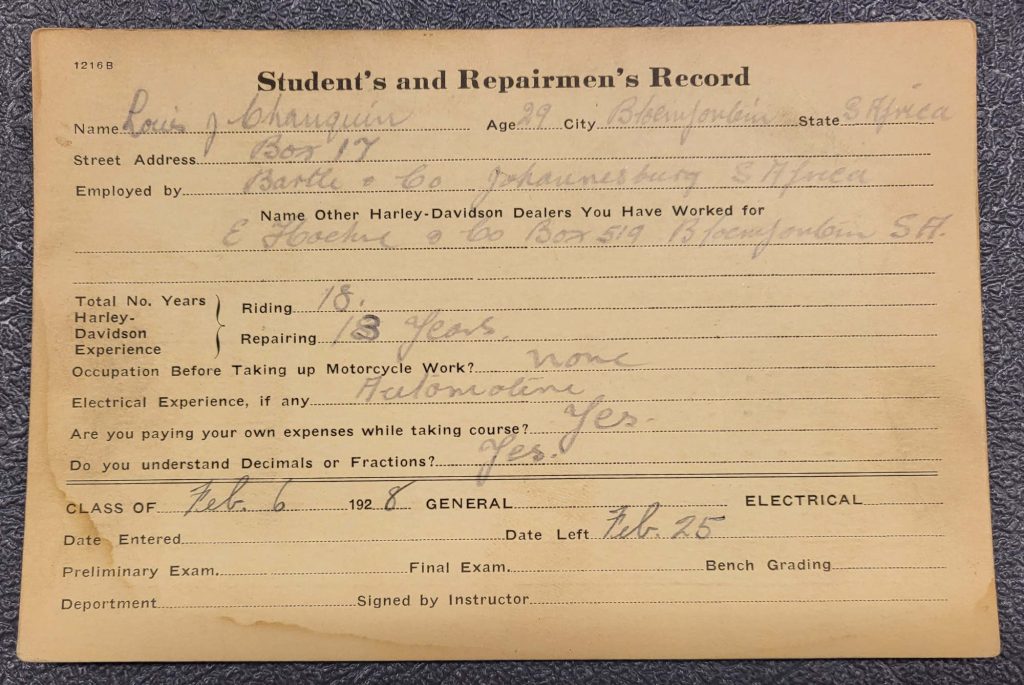 1216B
Student's and Repairmen's Record
Name Louis J Age 29 City Bloemfontein State S Africa
Street Address Box 17
Employed by Bartle & Co Johannesburg S Africa
Name Other Harley-Davidson Dealers You Have Worked for
E & Co Box 519 Bloemfontein S A.
Total No. Years Harley-Davidson Experience
Riding 18.
Repairing 13 Years.
Occupation Before Taking up Motorcycle Work? none
Electrical Experience, if any Automotive
Are you paying your own expenses while taking course? Yes.
Do you understand Decimals or Fractions? Yes.
CLASS OF Feb. 6 1928 GENERAL ELECTRICAL
Date Entered Date Left Feb. 25
Preliminary Exam. Final Exam. Bench Grading
Department Signed by Instructor